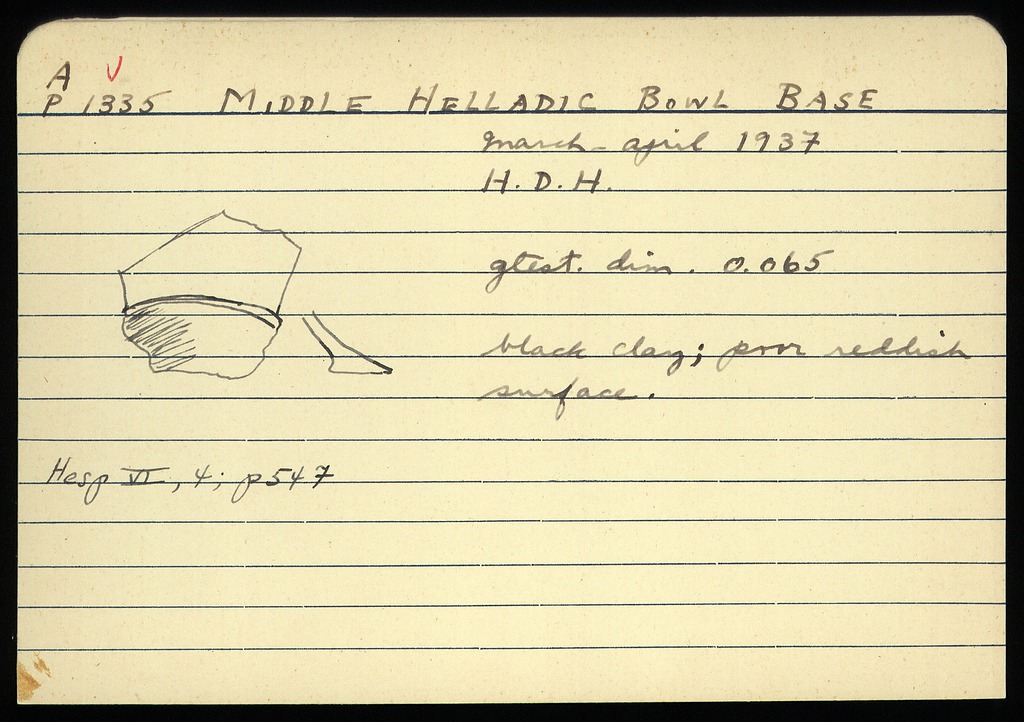 A V
P 1335 MIDDLE HELLADIC BOWL BASE
March - April 1937
H. D. H.
gtest. dim. 0.065
black clay; poor reddish
surface.
Hesp VI, 4; p547